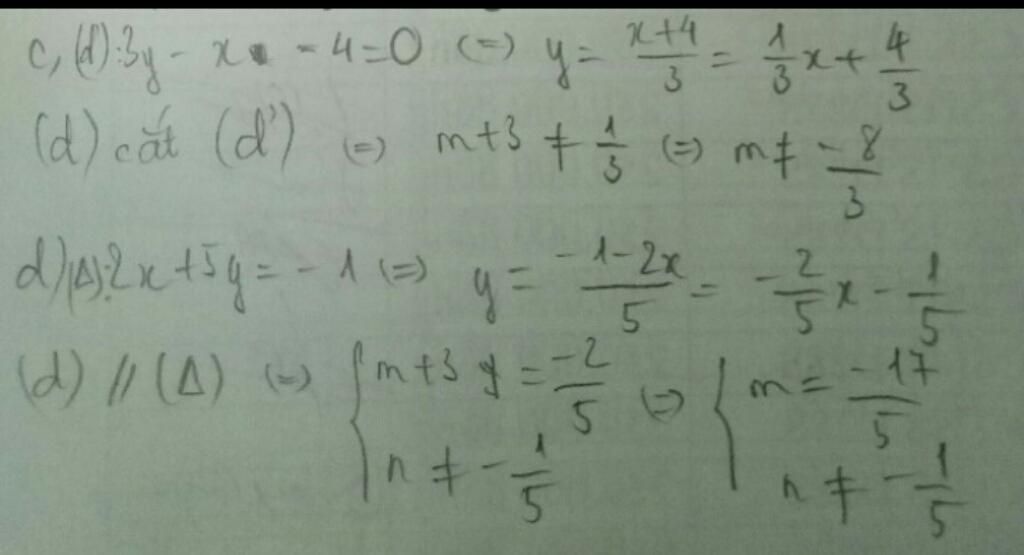 c, (d): 3y - x - 4 = 0 (=) y = \frac{x+4}{3} = \frac{1}{3}x + \frac{4}{3}
(d) cắt (d') (=) m+3 ≠ \frac{1}{3} (=) m ≠ \frac{-8}{3}
d) (Δ): 2x + 5y = -1 (=) y = \frac{-1-2x}{5} = -\frac{2}{5}x - \frac{1}{5}
(d) // (Δ) (=) { m+3 = \frac{-2}{5} (=) { m = \frac{-17}{5}
n ≠ -\frac{1}{5} n ≠ -\frac{1}{5}